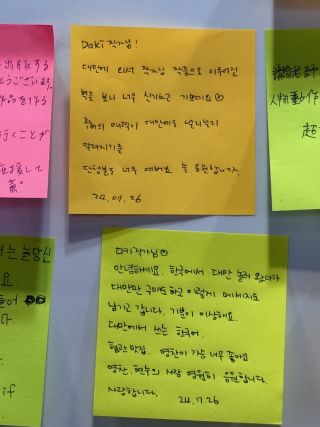 出版する
とうございます。
作品を作る
行くことが
応援して
Daki 작가님!
대만에 와서 작가님 작품으로 이루어진
벽을 보니 너무 신기하고 기쁘네요
매력이 대만에도 널리널리
알려지기를
단행본도 너무 예뻐요 늘 응원합니다.
24.07.26
人物動作
超
는 늘 당신
요
다.
if
다키 작가님
안녕하세요. 한국에서 대만 놀러 왔다가
대만판 구매도 하고 이렇게 메세지도
남기고 갑니다. 기분이 이상해요.
대만에서 쓰는 한국어.
혈관 맛집. 영찬이 가슴 너무 좋아요
영찬, 현수의 사랑 영원히 응원합니다
사랑합니다. 24.7.26